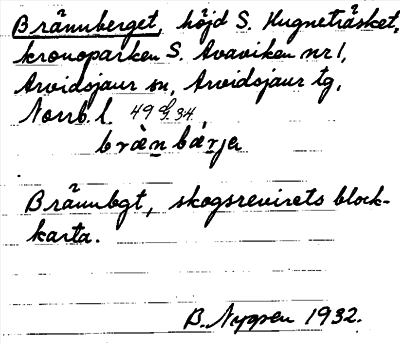 Brännberget, höjd S. Hugneträsket,
kronoparken S. Avaviken nr 1,
Arvidsjaur sn, Arvidsjaur tg,
Norrb. l. 49 g. 34.
bràn bàrja
Brännbgt, skogsrevirets block-
karta.
B. Nygren 1932.